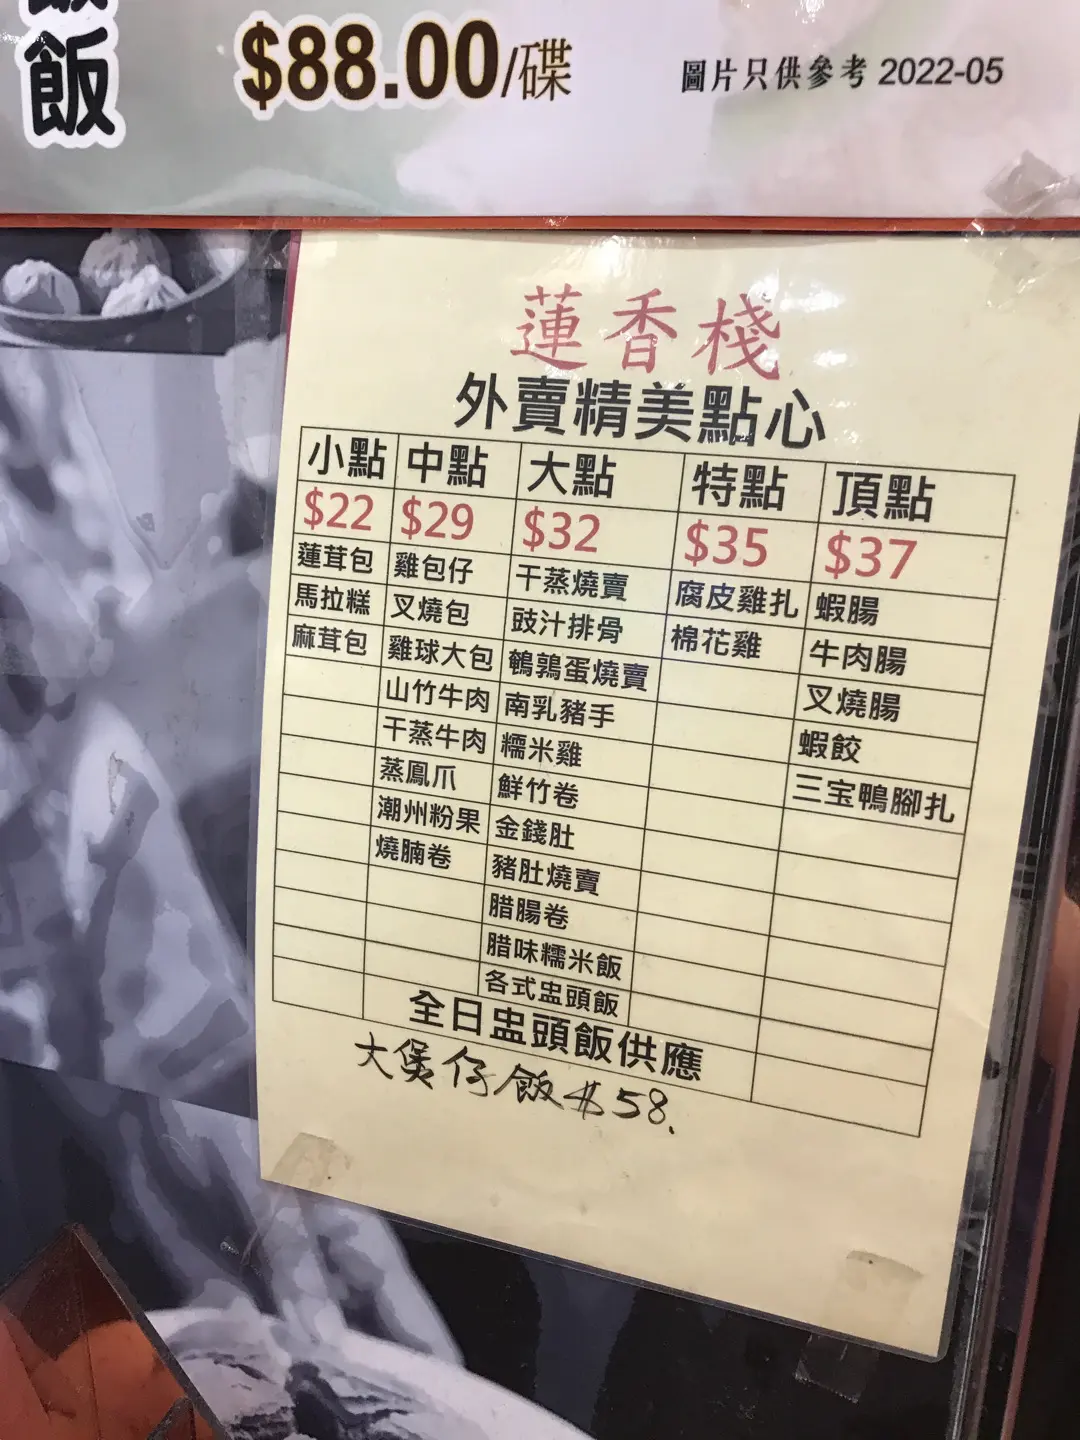 飯
$88.00/碟
圖片只供參考 2022-05
蓮香棧
外賣精美點心
小點 中點 大點 特點 頂點
$22 $29 $32 $35 $37
蓮茸包 雞包仔 干蒸燒賣 腐皮雞扎 蝦腸
馬拉糕 叉燒包 豉汁排骨 棉花雞 牛肉腸
麻茸包 雞球大包 鵪鶉蛋燒賣 叉燒腸
山竹牛肉 南乳豬手 蝦餃
干蒸牛肉 糯米雞 三宝鴨腳扎
蒸鳳爪 鮮竹卷
潮州粉果 金錢肚
燒腩卷 豬肚燒賣
腊腸卷
腊味糯米飯
各式盅頭飯
全日盅頭飯供應
大煲仔飯$58.